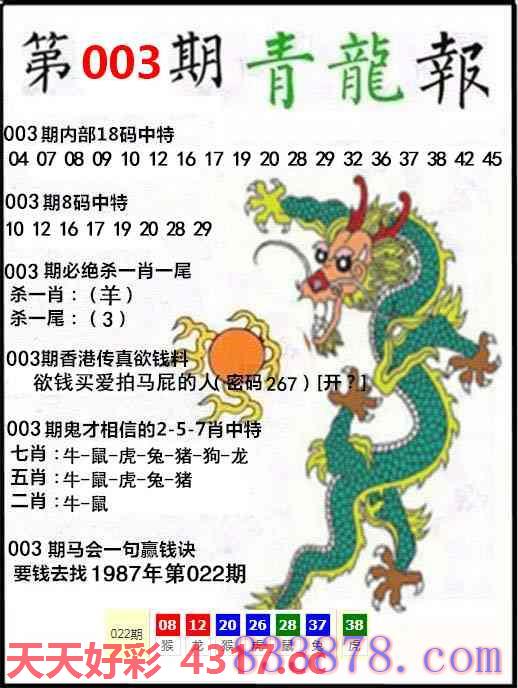 第003期青龍報
003期内部18码中特
04 07 08 09 10 12 16 17 19 20 28 29 32 36 37 38 42 45
003期8码中特
10 12 16 17 19 20 28 29
003 期必绝杀一肖一尾
杀一肖：（羊）
杀一尾：（3）
003期香港传真欲钱料
欲钱买爱拍马屁的人（密码267）[开？]
003期鬼才相信的2-5-7肖中特
七肖：牛-鼠-虎-兔-猪-狗-龙
五肖：牛-鼠-虎-兔-猪
二肖：牛-鼠
003 期马会一句赢钱诀
要钱去找1987年第022期
022期 08 12 20 26 28 37 38
猴 龙 猴 虎 鼠 兔 虎
天天好彩 4317.cc
833878.com